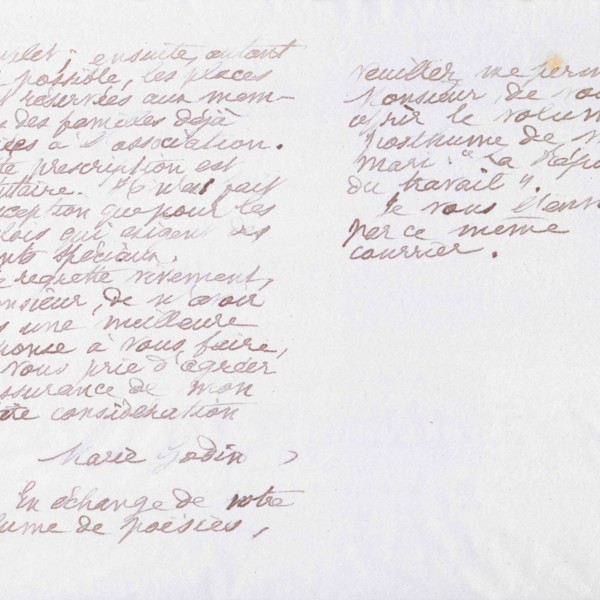 plet ; ensuite, autant
possible, les places
t réservées aux mem-
des familles déjà
ées à l'association.
te prescription est
tutaire. Il n'est fait
ception que pour les
lois qui exigent des
ents spéciaux.
regrette vivement,
onsieur, de n'avoir
s une meilleure
ponse à vous faire,
vous prie d'agréer
assurance de mon
ère considération
Marie Godin
En échange de votre
lume de poésies,
veuillez me perm
Monsieur, de vou
offrir le volum
posthume de m
mari. "La Répu
du travail".
Je vous l'env
par ce même
courrier.